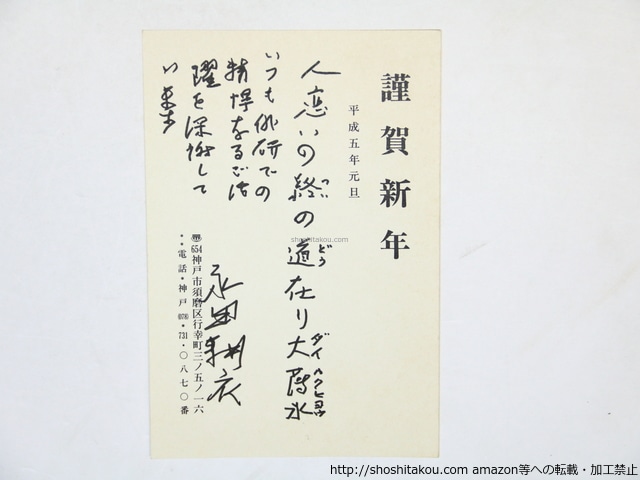 謹賀新年
平成五年元旦
人恋いの終の道在り大薄氷
つい
どう
ダイ
ハクヒョウ
いつも俳研での
精悍なるご活
躍を深謝して
います
永田耕衣
〒654神戸市須磨区行幸町三ノ五ノ一六
・・電話・神戸(078)・731・〇八七〇番
shoshitakou.com
http://shoshitakou.com amazon等への転載・加工禁止